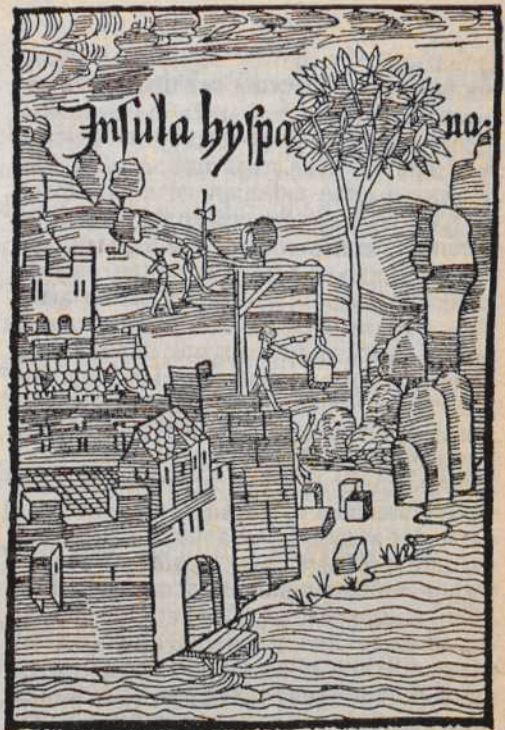 Insula hyspana: